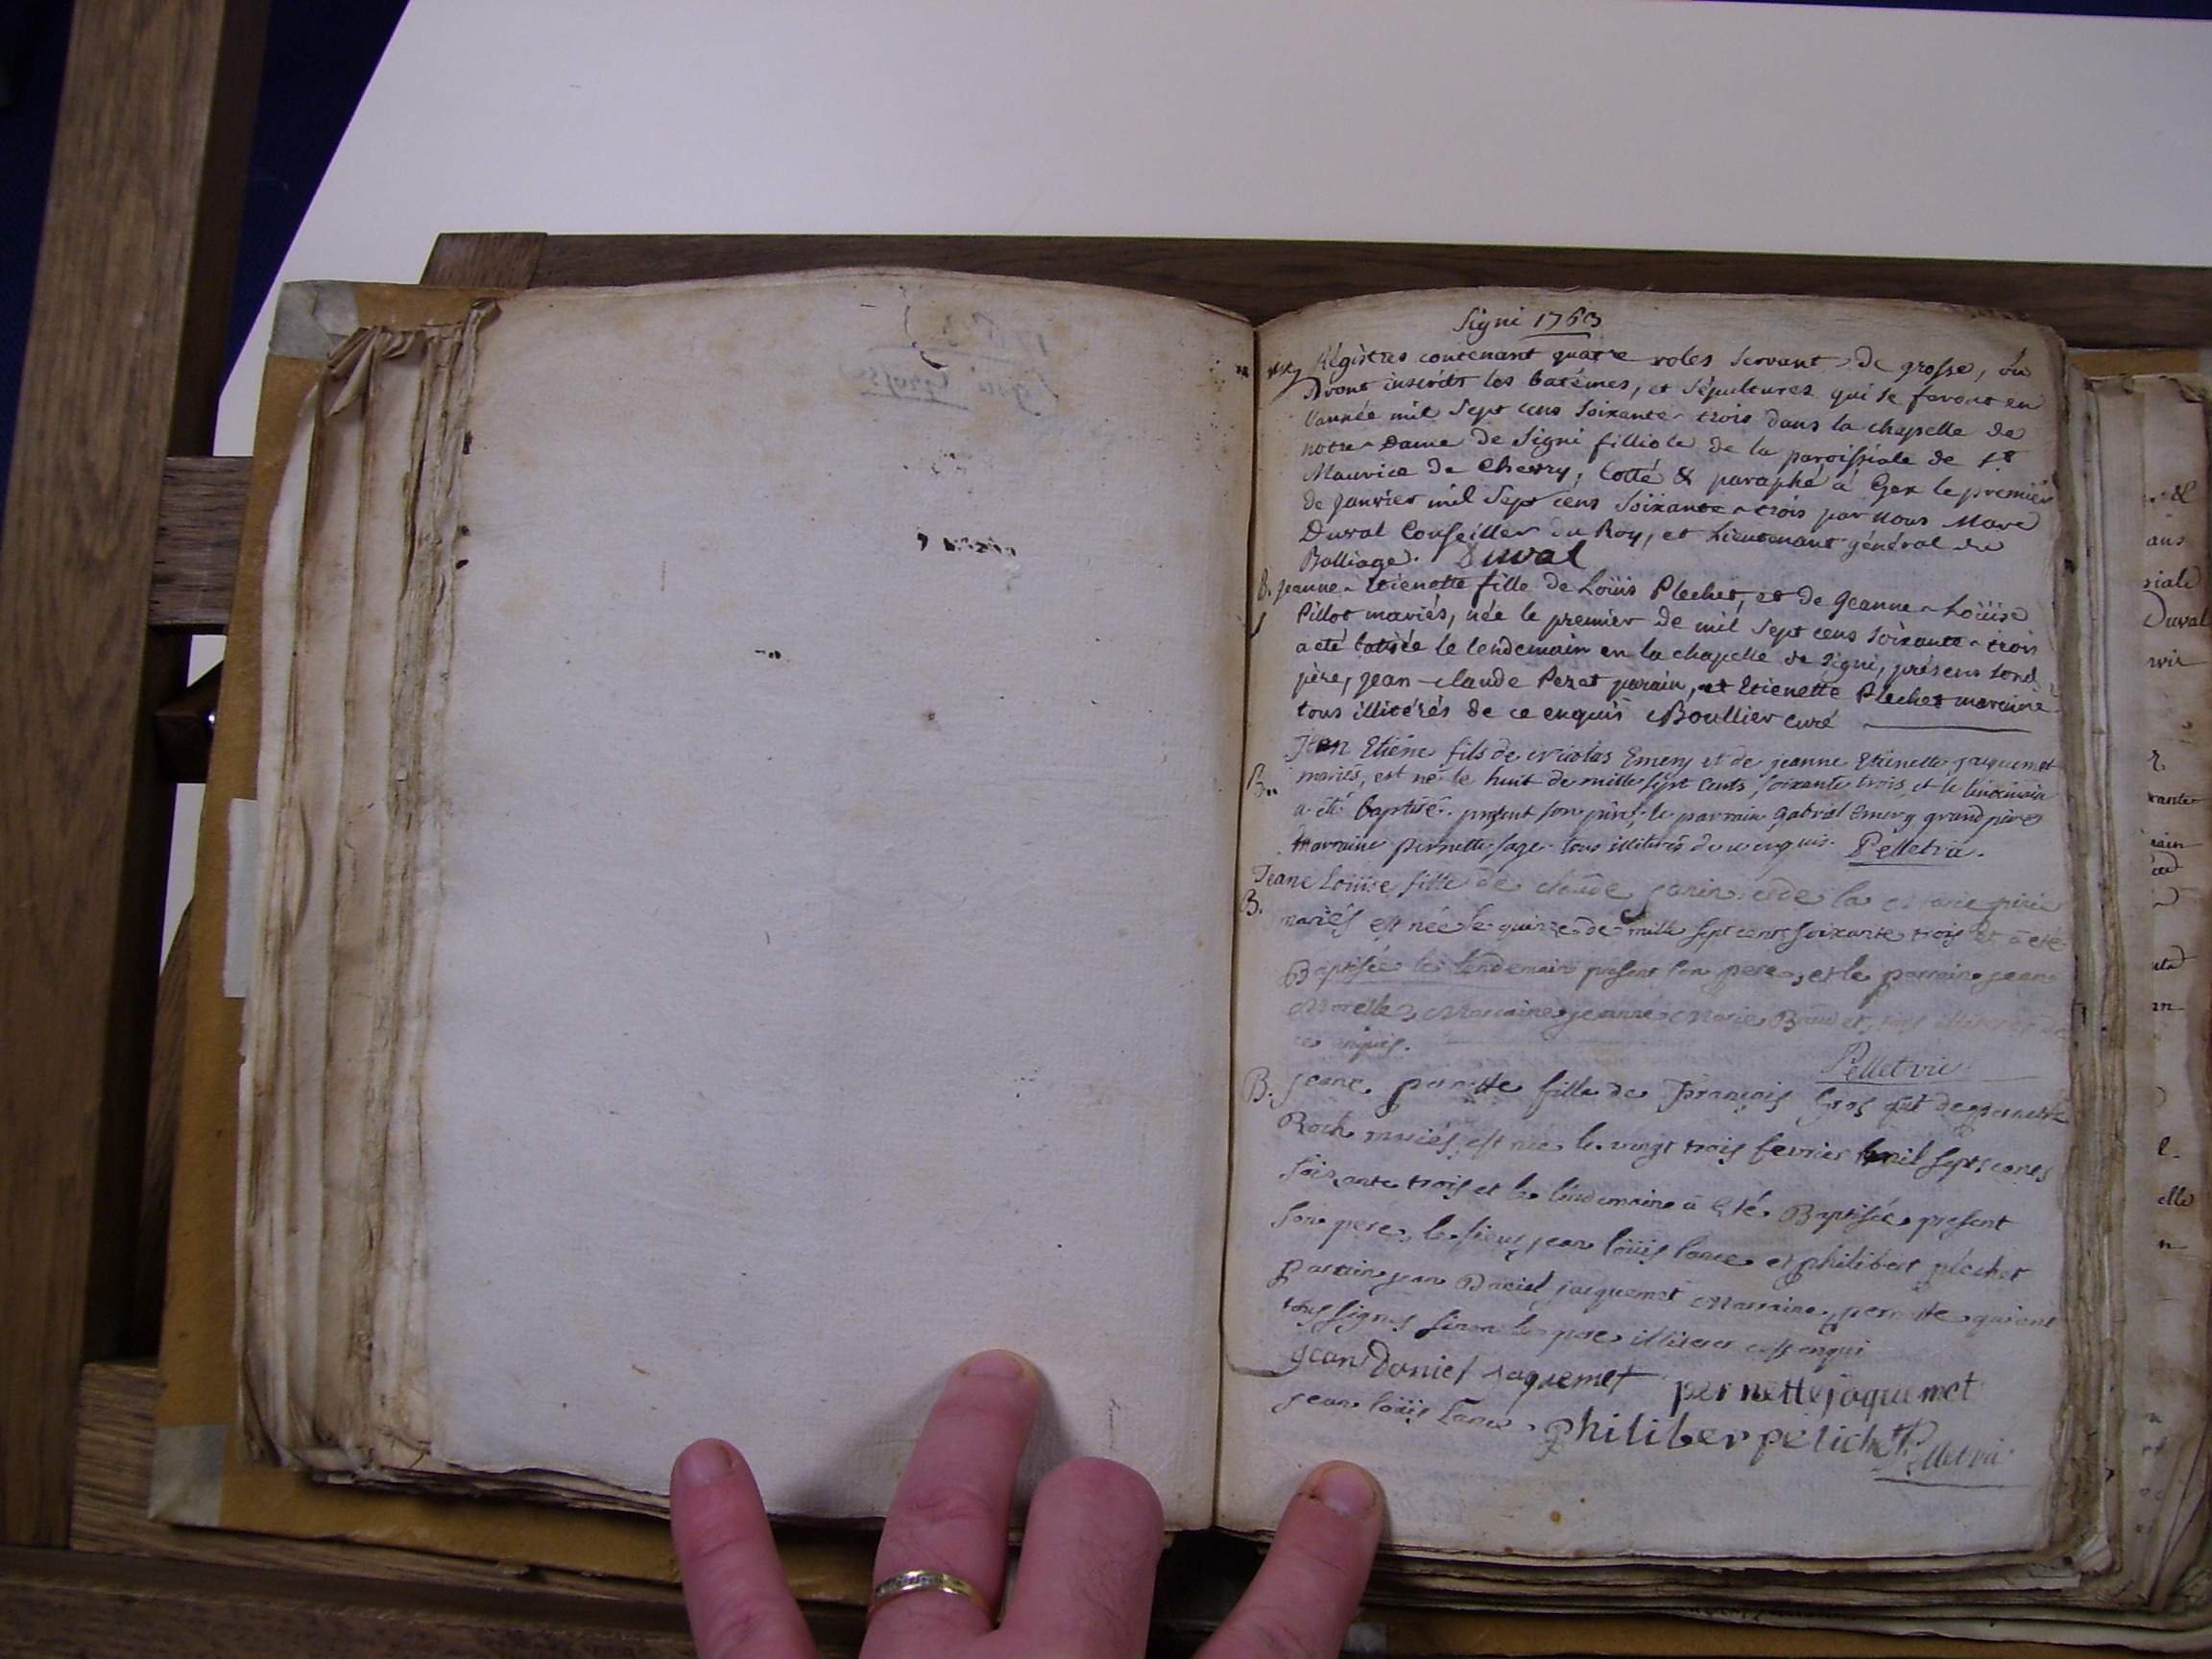 Signi 1763
Régistres contenant quatre roles servant de grosse, ou
seront inscrits les batêmes, et sépultures qui se feront en
l'année mil sept cens soixante-trois dans la chapelle de
notre-Dame de Signi filliole de la paroissiale de St
Maurice de Chevry, cotté & paraphé à Gex le premier
de janvier mil sept cens soixante-trois par nous Marc
Duval Conseiller du Roy, et Lieutenant général du
Balliage. Duval
B. Jeanne-Etienette fille de Loüis Plechet, et de Jeanne-Loüise
Pillot mariés, née le premier de mil sept cens soixante-trois
a été batisée le lendemain en la chapelle de Signi, présens son
père, Jean-claude Perat parain, et Etienette Plechet maraine
tous illitérés de ce enquis Boullier curé
Jean Etiéne fils de Nicolas Emery et de jeanne Etienette jaquemet
B. mariés, est né le huit de mille sept cents soixante trois, et le lendemain
a été baptisé. présent son père, le parrain Gabriel Emery grand père
marraine pernette sage tous illiterés de ce enquis. Pelletrie.
Jeane Loüise fille de claude et de la Marie
B. mariés est née le quinze de mille sept cent soixante trois et a été
Baptisée le lendemain present son pere, et le parrain jean
Morelle, Marraine jeanne Marie
ce enquis.
Pelletrie
B. jeane pernette fille de François Gros et de pernette
Roch mariés, est née le vingt trois fevrier mil sept cents
soixante trois et le lendemain a été Baptisée present
son pere, le sieur jean loüis lance et philibert pechet
parrain jean Daniel jacquemet Marraine pernette qui ont
tous signés sinon le pere illiteres enqui
jean Daniel jaquemet pernette jaquemet
jean loüis Lance philiber pelichet Pelletrie